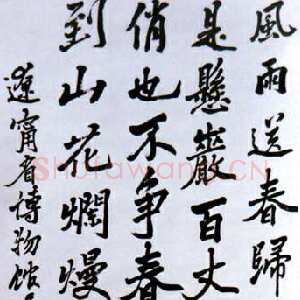 風雨送春歸
是懸巖百丈
俏也不争春
到山花爛熳
遼甯省博物館
Shufawang.CN